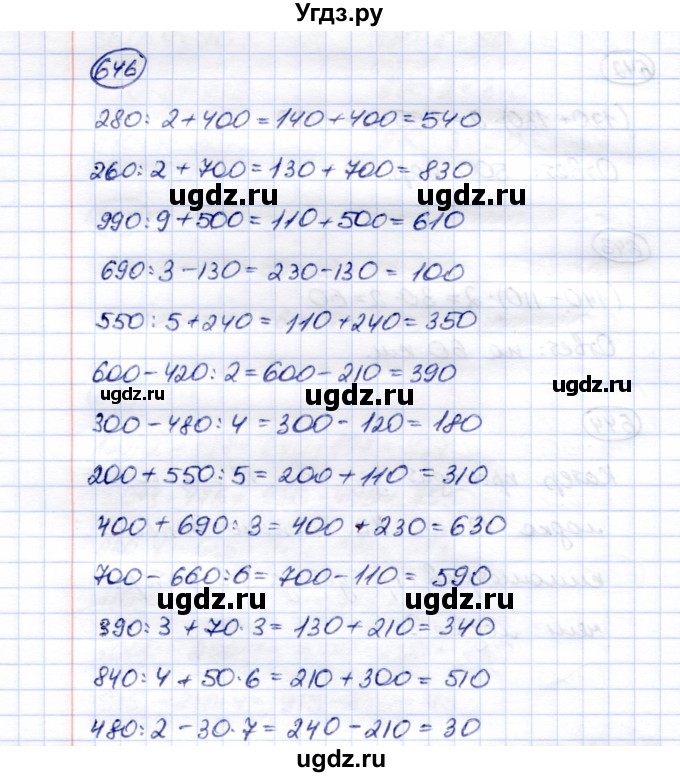 Угдз.ру
646
280 : 2 + 400 = 140 + 400 = 540
260 : 2 + 700 = 130 + 700 = 830
ugdz.ru ugdz.ru
990 : 9 + 500 = 110 + 500 = 610
690 : 3 - 130 = 230 - 130 = 100
550 : 5 + 240 = 110 + 240 = 350
600 - 420 : 2 = 600 - 210 = 390
ugdz.ru ugdz.ru ugdz.ru
300 - 480 : 4 = 300 - 120 = 180
200 + 550 : 5 = 200 + 110 = 310
400 + 690 : 3 = 400 + 230 = 630
700 - 660 : 6 = 700 - 110 = 590
ugdz.ru ugdz.ru
390 : 3 + 70 · 3 = 130 + 210 = 340
840 : 4 + 50 · 6 = 210 + 300 = 510
480 : 2 - 30 · 7 = 240 - 210 = 30
ugdz.ru